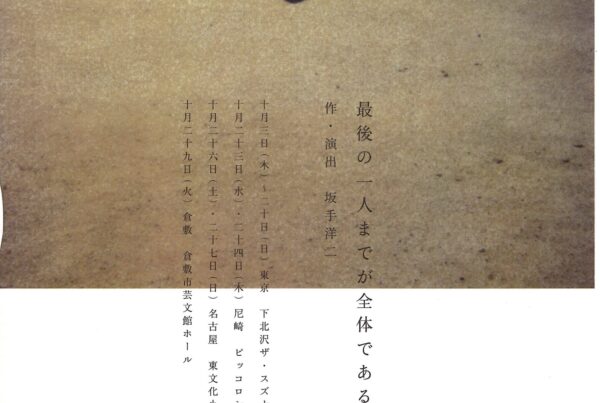 最後の一人までが全体である
作・演出　坂手洋二
十月三日(木)～二十日(日)東京　下北沢ザ・スズ
十月二十三日(水)・二十四日(木)尼崎　ピッコロ
十月二十六日(土)・二十七日(日)名古屋　東文化
十月二十九日(火)倉敷　倉敷市芸文館ホール